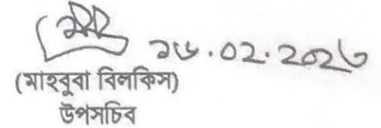 ২৬.০২.২০২৩
(মাহবুবা বিলকিস)
উপসচিব